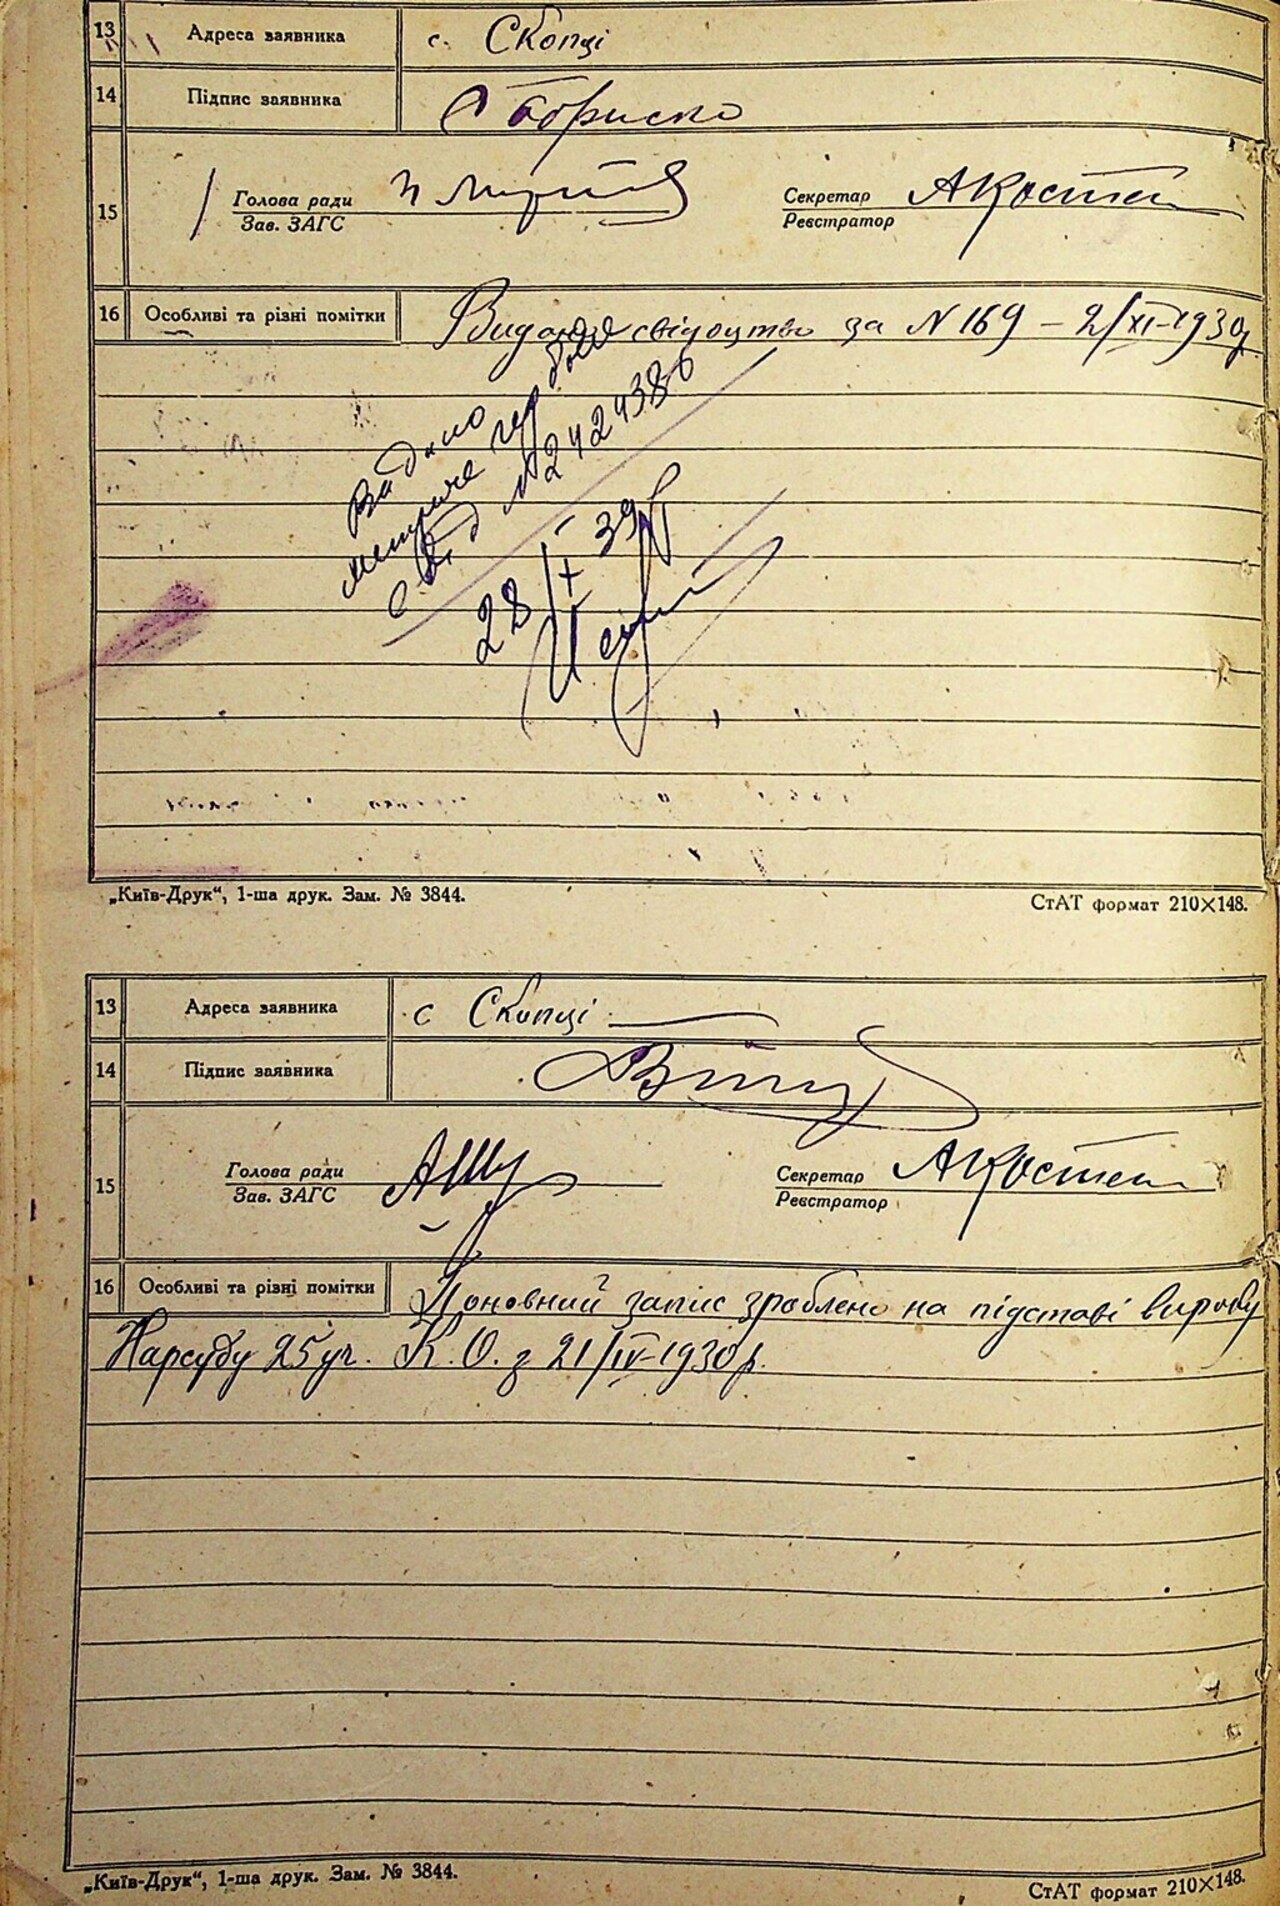 13 Адреса заявника с. Скопці
14 Підпис заявника Бориско
15 Голова ради Секретар АКостен
Зав. ЗАГС Реєстратор
16 Особливі та різні помітки Видано свідоцтво за N 169 – 2/XI-1930р
Видано
метричне гербове
свід N 2424386
28/X – 39р
„Київ-Друк“, 1-ша друк. Зам. № 3844. СтАТ формат 210×148.
13 Адреса заявника с Скопці
14 Підпис заявника
15 Голова ради Секретар АКостен
Зав. ЗАГС Реєстратор
16 Особливі та різні помітки Поновний запис зроблено на підставі вироку
Нарсуду 25 уч. К. О. з 21/IV-1930р.
„Київ-Друк“, 1-ша друк. Зам. № 3844. СтАТ формат 210×148.